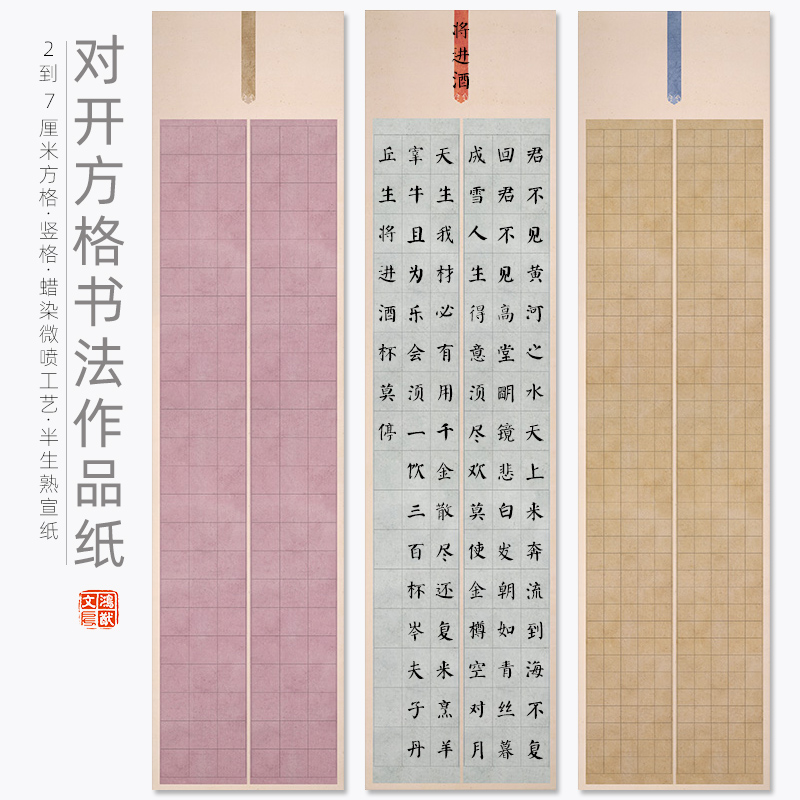 对开方格书法作品纸
2到7厘米方格·竖格·蜡染微喷工艺·半生熟宣纸
将进酒
君不见黄河之水天上来奔流到海不复
回君不见高堂明镜悲白发朝如青丝暮
成雪人生得意须尽欢莫使金樽空对月
天生我材必有用千金散尽还复来烹羊
宰牛且为乐会须一饮三百杯岑夫子丹
丘生将进酒杯莫停